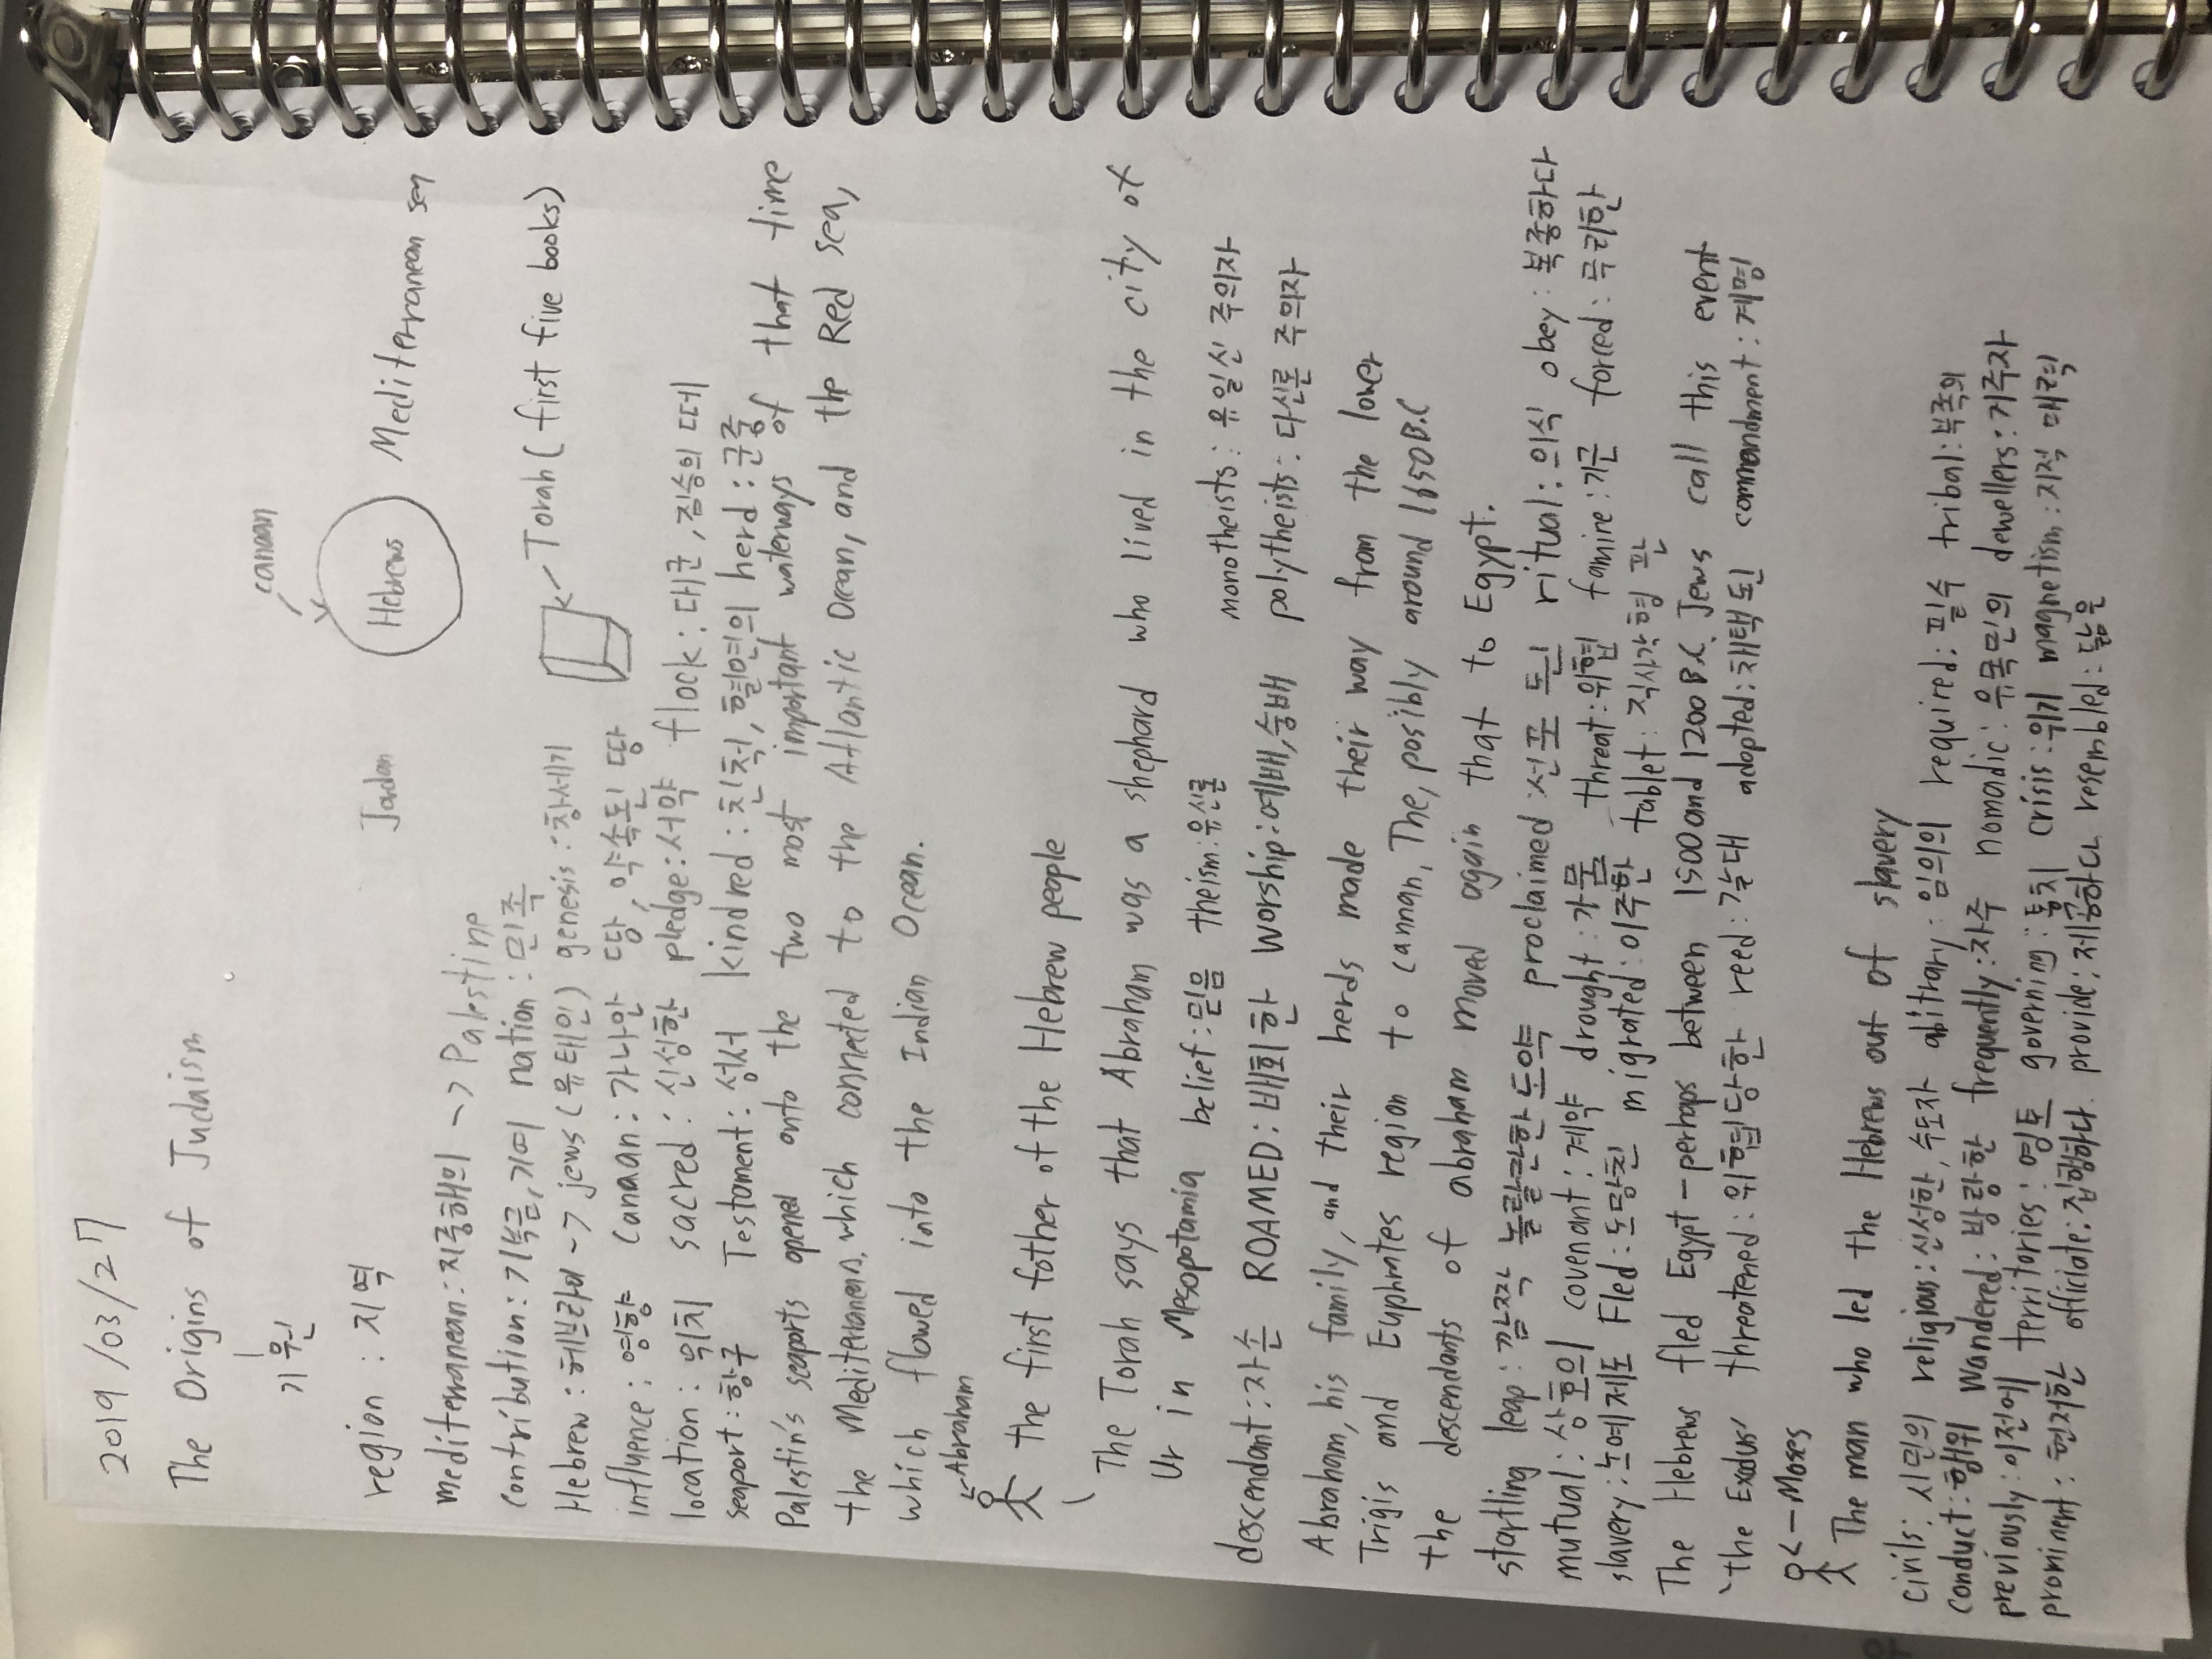 2019/03/27
The Origins of Judaism
기원
canaan
region : 지역
Jordan
Hebrews
Mediterranean sea
mediterranean : 지중해의 -> Palestine
contribution : 기부금, 기여 nation : 민족
Torah ( first five books)
Hebrew : 헤브라이 -> jews (유태인) genesis : 창세기
influence : 영향 Canaan : 가나안 땅, 약속된 땅
location : 위치 sacred : 신성한 pledge : 서약 flock : 대군, 짐승의 떼
seaport : 항구 Testament : 성서 kindred : 친척, 혈연의 herd : 군중
Palestin's seaports opened onto the two most important waterways of that time
the Mediteraneas, which connated to the Atlantic Ocean, and the Red sea,
which flowed into the Indian Ocean.
<-Abraham
The first father of the Hebrew people
The Torah says that Abraham was a shephard who lived in the city of
Ur in Mesopotamia belief : 믿음 theism : 유신론 monotheists : 유일신 주의자
descendant : 자손 ROAMED : 배회한 worship : 예배, 숭배 polytheists : 다신론 주의자
Abraham, his family, and their herds made their way from the lower
Trigis and Euphrates region to Cannan, The, posibly around 1650 B.C
the descendants of abraham moved again that to Egypt.
startling leap : 깜짝 놀랄만한 도약 proclaimed 선포 된 ritual : 의식 obey : 복종하다
mutual : 상호의 covenant : 계약 drought : 가뭄 threat : 위협 famine : 기근 forced : 무리한
slavery : 노예제도 Fled : 도망친 migrated : 이주한 tablet : 직사각형 판
The Hebrews fled Egypt - perhaps between 1500 and 1200 B.C. Jews call this event
'the Exodus' threatened : 위협당한 reed : 갈대 adopted : 채택된 commandment : 계명
<- Moses
The man who led the Hebrews out of slavery
civils : 시민의 religious : 신성한, 수도자 abitrary : 임의의 required : 필수 tribal : 부족의
conduct : 행위 wandered : 방랑한 frequently : 자주 nomadic : 유목민의 dewellers : 거주자
previously : 이전에 territories : 영토 governing : 통치 crisis : 위기 magnetism : 지적 매력
prominent : 현저한 officiate : 집행하다 provide : 제공하다 resembled : 닮은